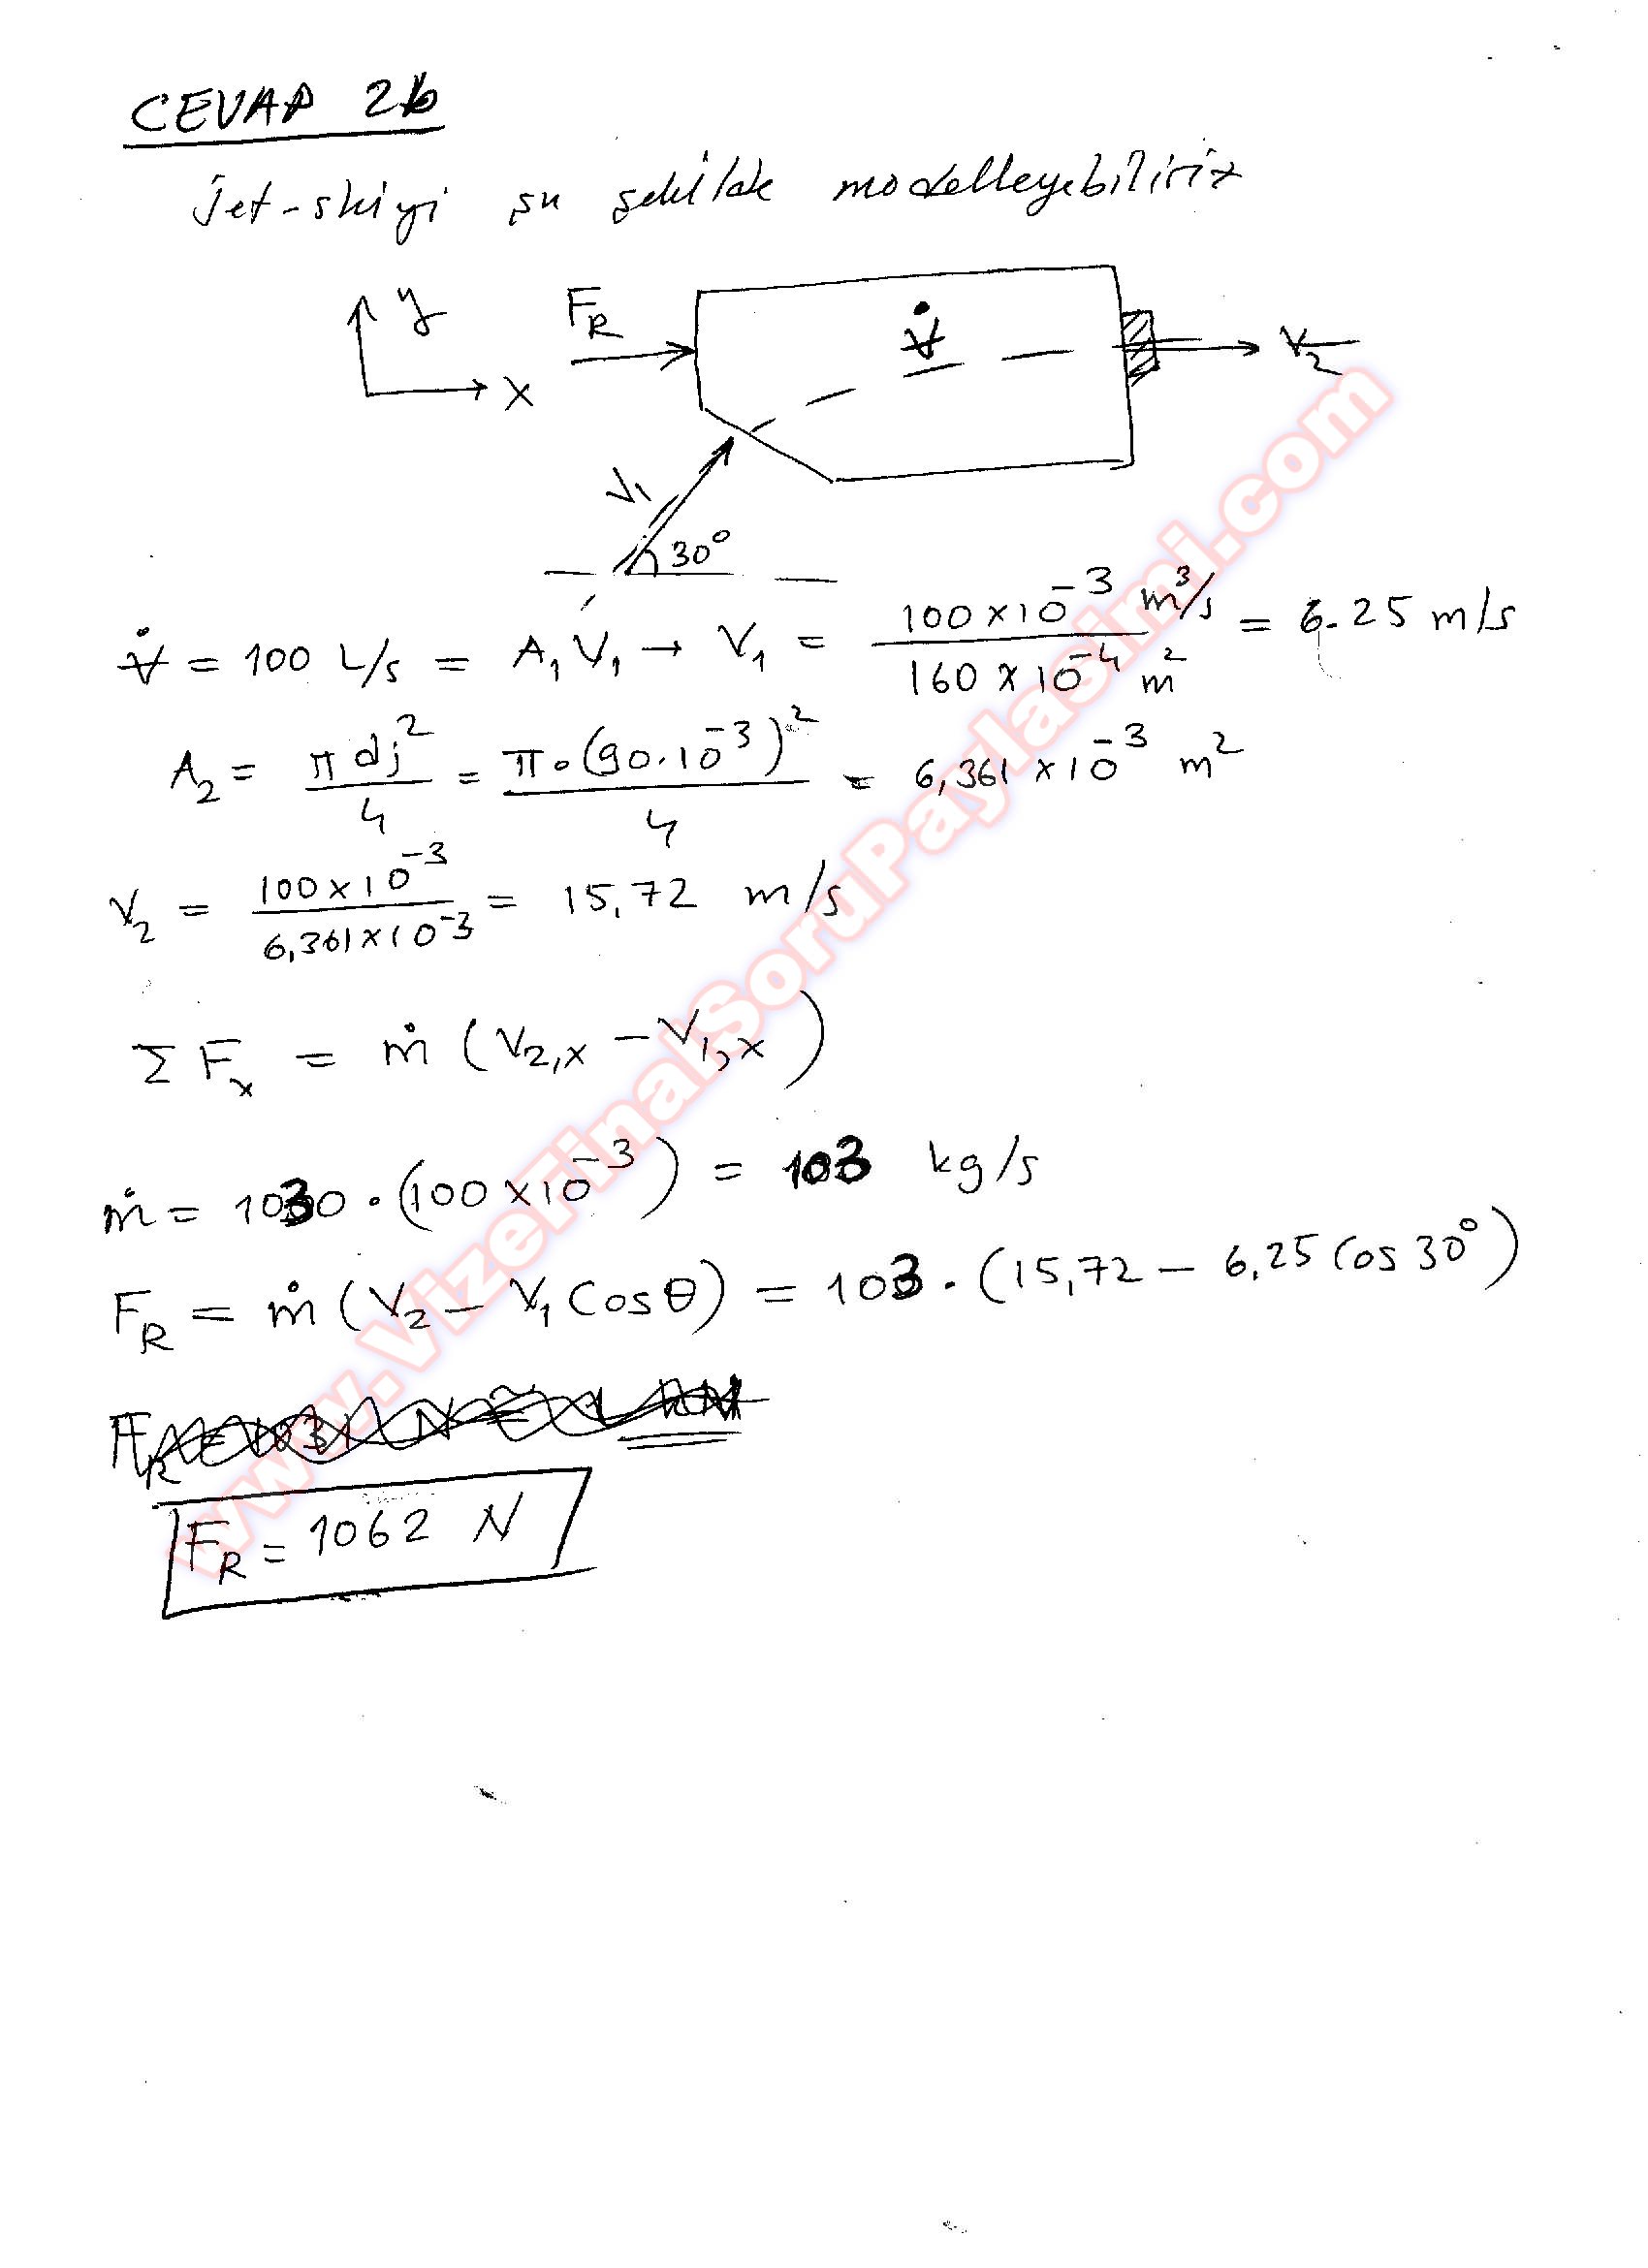 CEVAP 2b
Jet-skiyi şu şekilde modelleyebiliriz
y
x
F_R
V̇
V_2
V_1
30°
V̇ = 100 L/s = A_1 V_1 → V_1 = (100 x 10^-3 m^3/s) / (160 x 10^-4 m^2) = 6.25 m/s
A_2 = π dj^2 / 4 = π.(90.10^-3)^2 / 4 = 6,361 x 10^-3 m^2
V_2 = 100 x 10^-3 / 6,361 x 10^-3 = 15,72 m/s
Σ F_x = ṁ (V_2,x - V_1,x)
ṁ = 1030 . (100 x 10^-3) = 103 kg/s
F_R = ṁ (V_2 - V_1 Cos θ) = 103 . (15,72 - 6,25 Cos 30°)
F_R = 1062 N
www.VizeFinalSoruPaylasimi.com